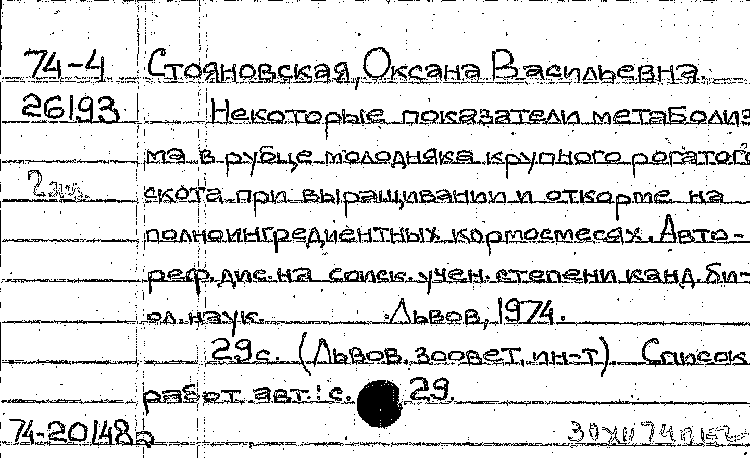 74-4 Стояновская, Оксана Васильевна.
26193 Некоторые показатели метаболиз
ма в рубце молодняка крупного рогатого
скота при выращивании и откорме на
полноингредиентных кормосмесях. Авто-
реф. дис. на соиск. учен. степени канд. би-
ол. наук. Львов, 1974.
29 с. (Львов. зоовет. ин-т). Список
работ авт.: с. 29.
74-20148а